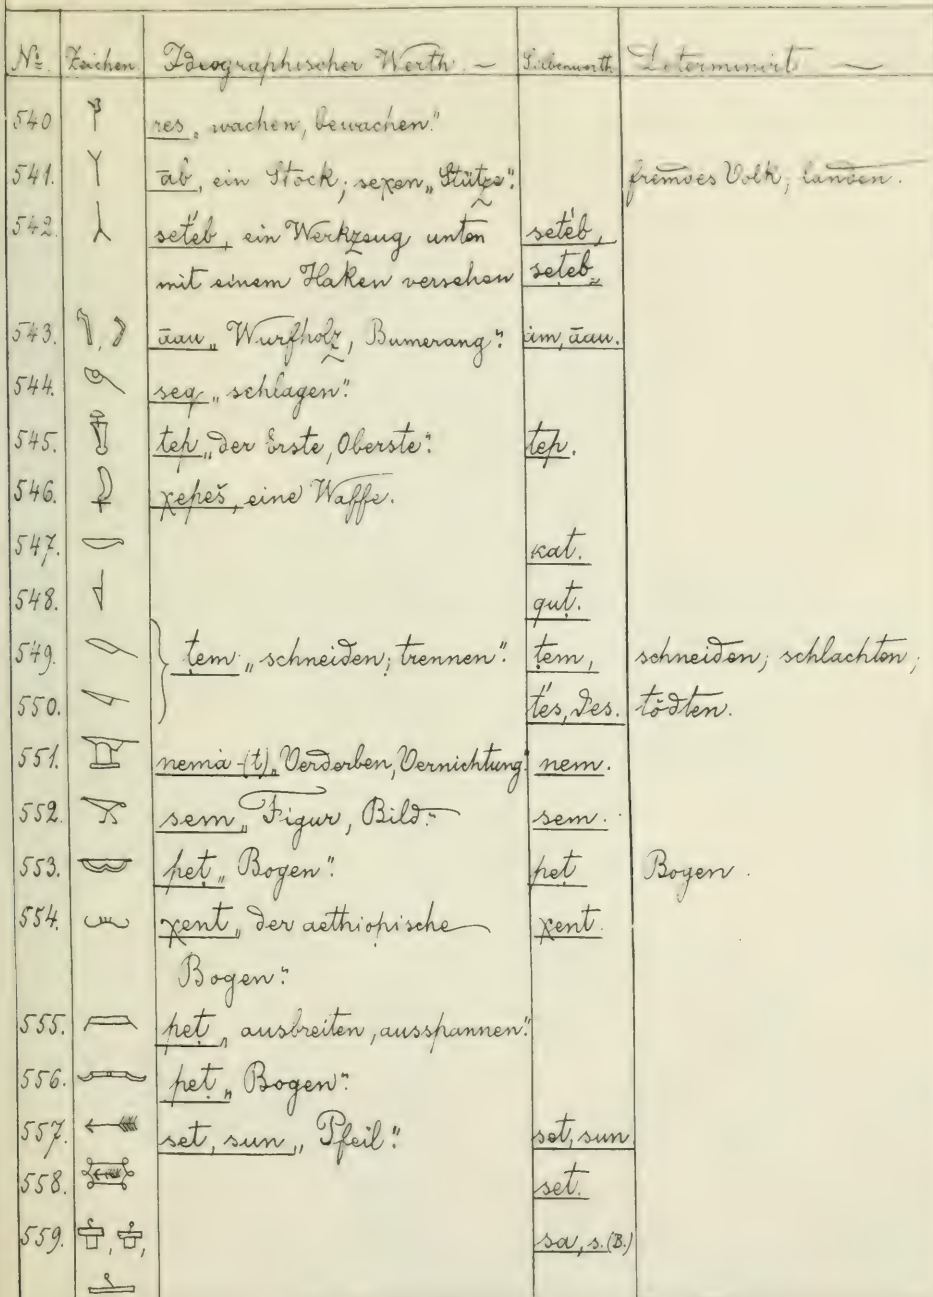 № Zeichen Ideographischer Werth Silbenwerth Determinirt
540 res „wachen, bewachen."
541. āb, ein Stock; seχen „Stütze". fremdes Volk; landen.
542. set́eb, ein Werkzeug unten set́eb,
mit einem Haken versehen seteb
543. āau „Wurfholz, Bumerang". ām, āau.
544. seq „schlagen".
545. tep „der Erste, Oberste". tep.
546. χepeš, eine Waffe.
547. kat.
548. quṭ.
549. ṭem „schneiden; trennen". ṭem, schneiden; schlachten;
550. ṭes, des. tödten.
551. nemá-(t) „Verderben, Vernichtung" nem.
552. sem „Figur, Bild. sem.
553. peṭ „Bogen". peṭ Bogen.
554. χent „der aethiopische χent.
Bogen".
555. peṭ „ausbreiten, ausspannen".
556. peṭ „Bogen".
557. set, sun „Pfeil". set, sun
558. set.
559. sa, s. (B.)